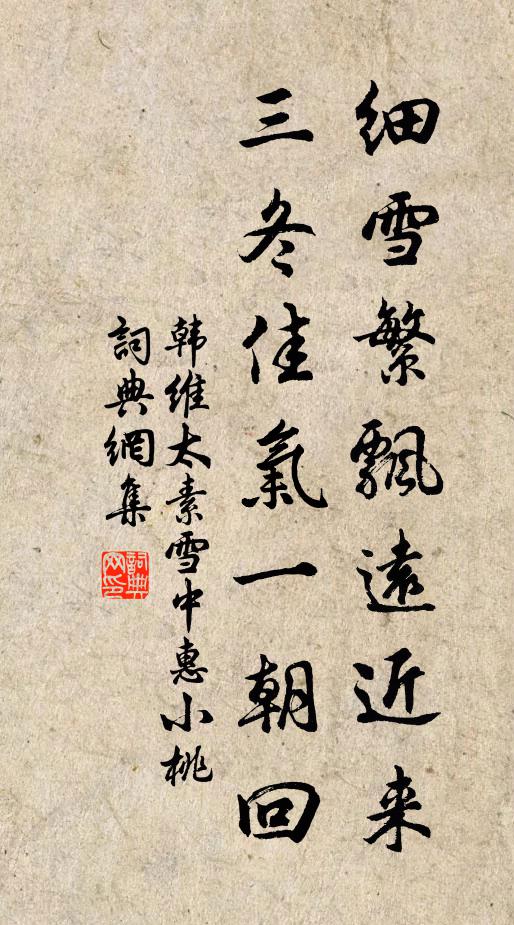 細雪繁飄遠近来
三冬佳氣一朝回
韩維太素雪中惠小桃
詞典網集
詞典网印